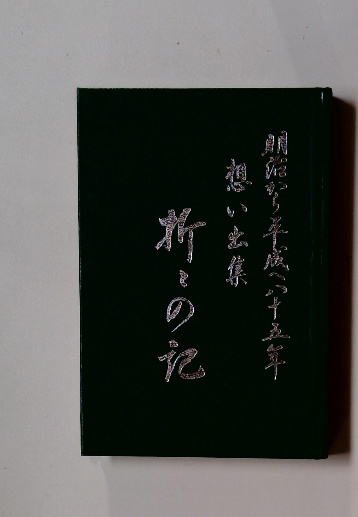 明治から平成へ八十五年
想い出集
折々の記